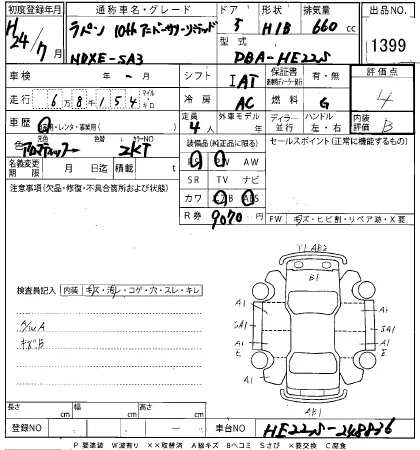 初度登録年月 通称車名・グレード ドア 形状 排気量 出品NO
H24/7月 ラパン 10th アニバーサリーリミテッド 5 H/B 660cc 1399
型式
HDXE-SA3 DBA-HE22S
車検 年 - 月 シフト IAT 保証書 有・無 評価点
走行 6万8千154 マイル キロ 冷房 AC 燃料 G 4
車歴 自家用・レンタ・事業用( ) 定員 4人 外車モデル ディーラー 並行 ハンドル 左・右 内装評価 B
色 元色 色替 カラーNO ZKT
装備品(純正品に限る) セールスポイント(正常に機能するもの)
名義変更期限 月 日迄 積載 t
SR PS PW AW
SR TV ナビ
カワ エアB ABS
R券 9070円
FW キズ・ヒビ割・リペア跡・X要
注意事項(欠品・修復・不具合箇所および状態)
Y1 AB2
B1
A1 A1
SA1 SA1
A1 A1
E E
AB1
検査員記入 内装 キズ・汚レ・コゲ・穴・スレ・キレ
A/W A
キズB
長さ cm 幅 cm 高さ cm
登録NO 車台NO HE22S-248836
P要塗装 W波有り ××取替済 A線キズ Bヘコミ Sさび ×要交換 C腐食